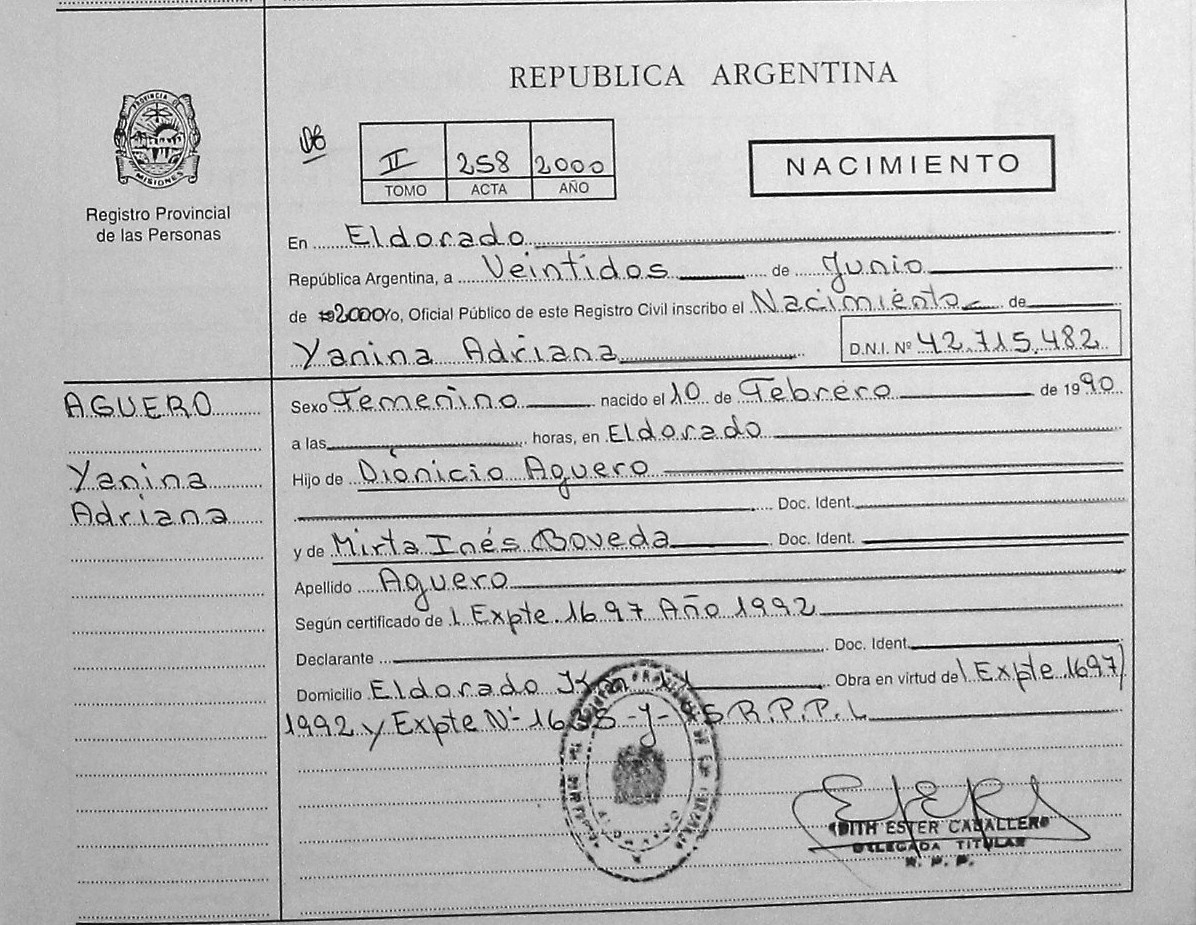 REPUBLICA ARGENTINA
PROVINCIA DE
MISIONES
Registro Provincial
de las Personas
II 258 2000
TOMO ACTA AÑO
NACIMIENTO
En Eldorado
República Argentina, a Veintidos de Junio
de 2000 yo, Oficial Público de este Registro Civil inscribo el Nacimiento de
Yanina Adriana D.N.I. Nº 42.715.482
AGUERO
Yanina
Adriana
Sexo Femenino nacido el 10 de Febrero de 1990
a las horas, en Eldorado
Hijo de Dionicio Aguero
Doc. Ident.
y de Mirta Inés Boveda Doc. Ident.
Apellido Aguero
Según certificado de Expte. 1697 Año 1992
Declarante Doc. Ident.
Domicilio Eldorado Obra en virtud del Expte. 1697/
1992 y Expte Nº R.P.P.L
EDITH ESTER CABALLERO
DELEGADA TITULAR
R. P. P.